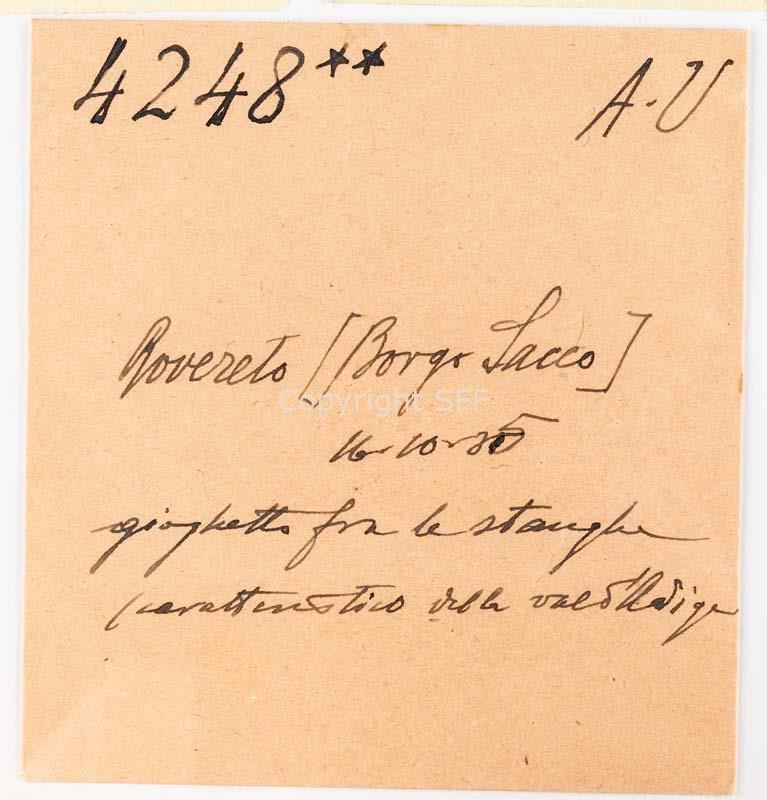 4248** A.U
Rovereto [Borgo Sacco]
Copyright SFF
16-10-35
gioghetto fra le stanghe
(caratteristico della val d'Adige